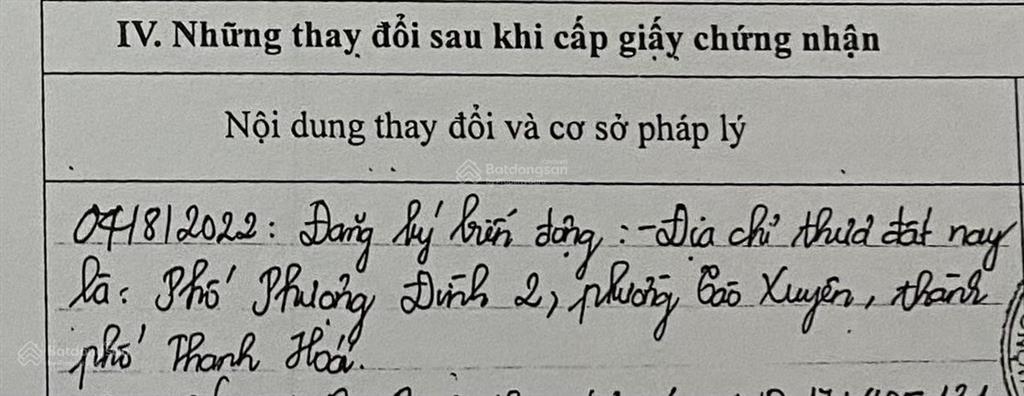 IV. Những thay đổi sau khi cấp giấy chứng nhận
Nội dung thay đổi và cơ sở pháp lý
Batdongsan
04/8/2022: Đăng ký biến động: - Địa chỉ thửa đất nay
là: Phố Phượng Đình 2, phường Tào Xuyên, thành
phố Thanh Hoá.